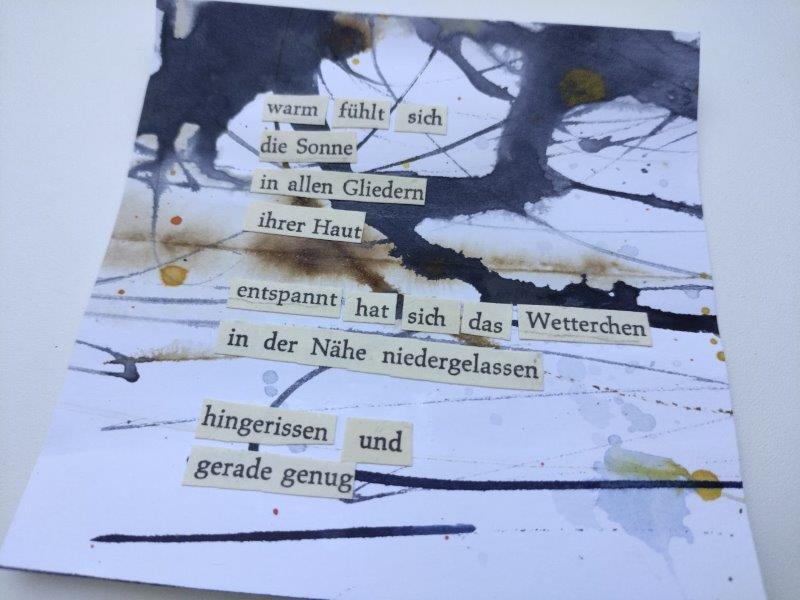 warm fühlt sich
die Sonne
in allen Gliedern
ihrer Haut
entspannt hat sich das Wetterchen
in der Nähe niedergelassen
hingerissen und
gerade genug